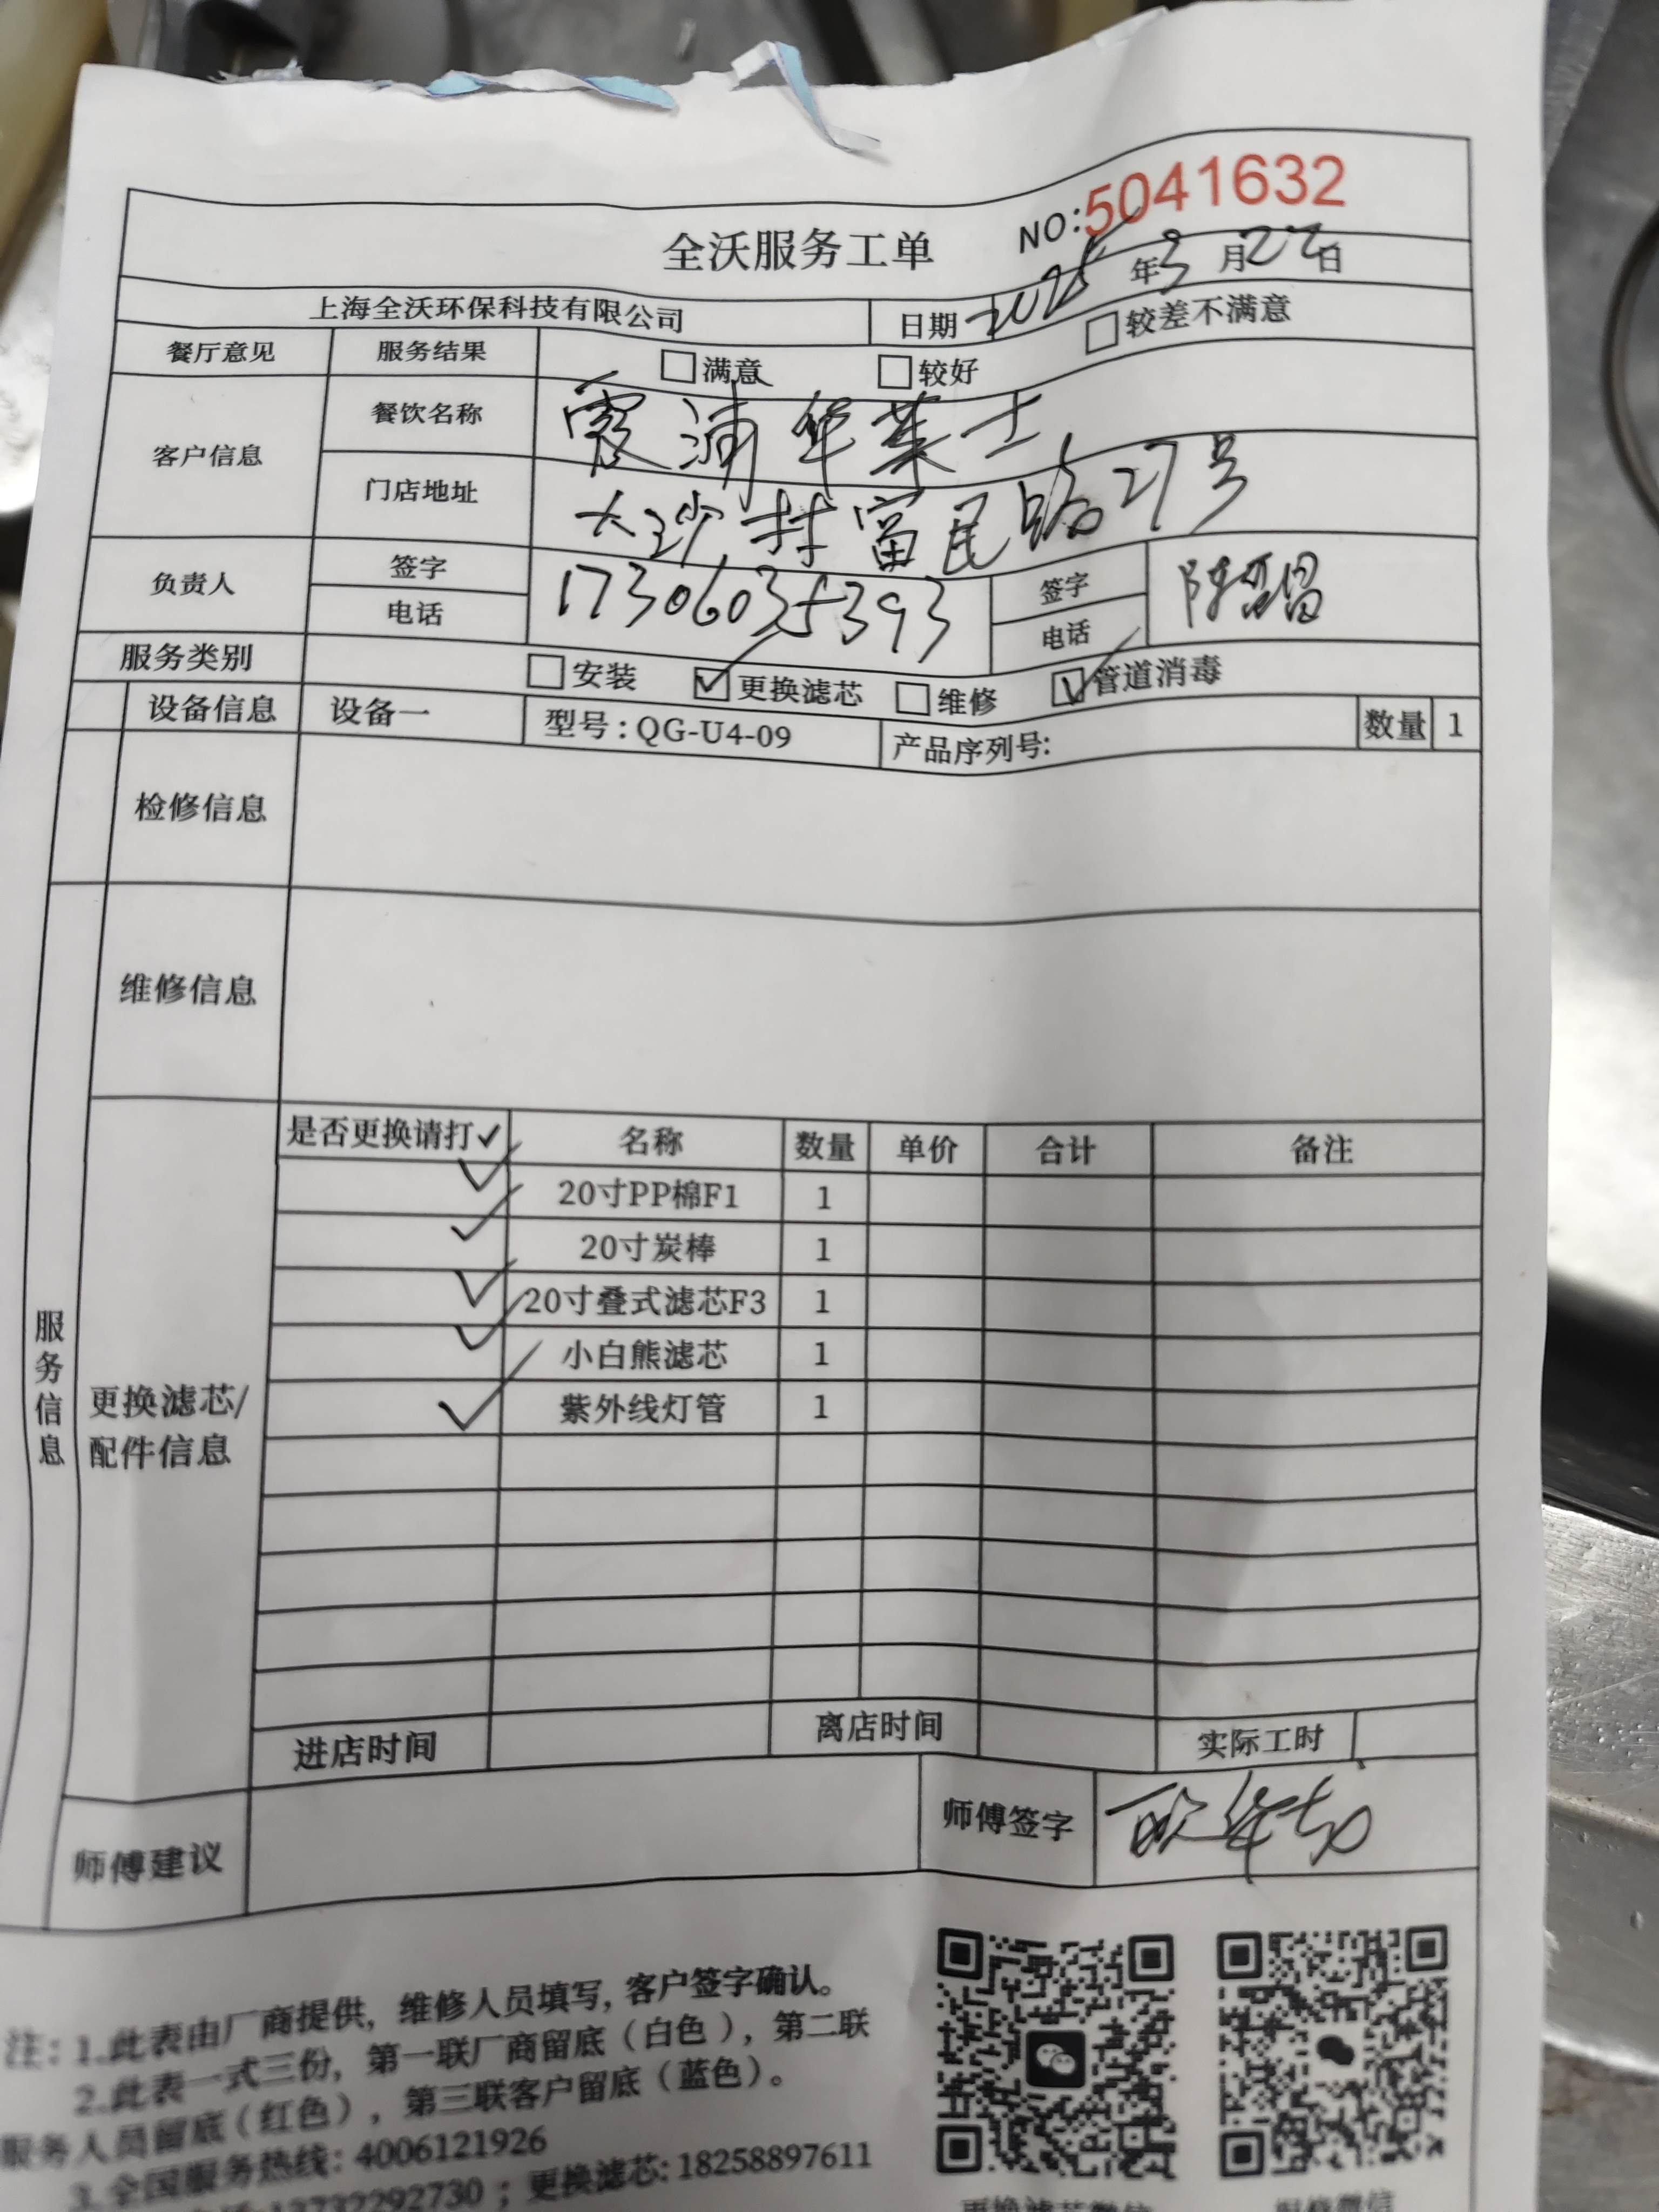 NO:5041632
全沃服务工单
2025年3月22日
上海全沃环保科技有限公司 日期
餐厅意见 服务结果 满意 较好 较差不满意
客户信息 餐饮名称 霞浦华莱士
门店地址 大沙村富民路27号
负责人 签字 17306035393 签字
电话 电话
服务类别 安装 ✓更换滤芯 维修 ✓管道消毒
设备信息 设备一 型号:QG-U4-09 产品序列号: 数量 1
检修信息
维修信息
服务信息
更换滤芯/
配件信息
是否更换请打✓ 名称 数量 单价 合计 备注
✓ 20寸PP棉F1 1
✓ 20寸炭棒 1
✓ 20寸叠式滤芯F3 1
✓ 小白熊滤芯 1
✓ 紫外线灯管 1
进店时间 离店时间 实际工时
师傅建议 师傅签字
注:1.此表由厂商提供,维修人员填写,客户签字确认。
2.此表一式三份,第一联厂商留底(白色),第二联
服务人员留底(红色),第三联客户留底(蓝色)。
3.全国服务热线:4006121926
13732292730;更换滤芯:18258897611
更换滤芯微信 报修微信